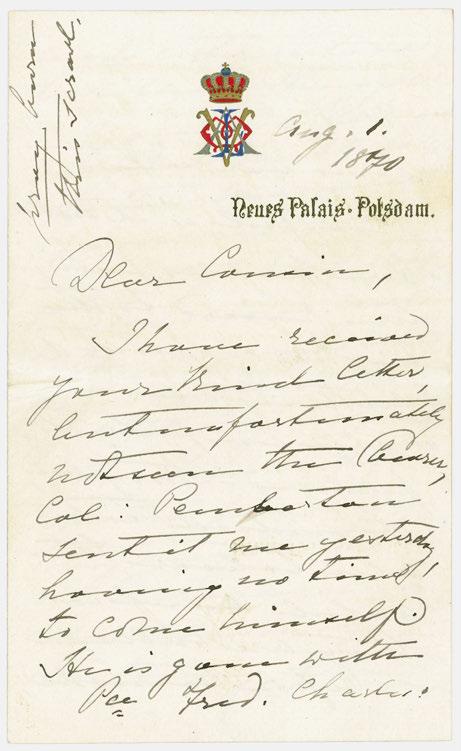 pray burn
this scrawl.
Aug. 1.
1870
Neues Palais · Potsdam.
Dear Cousin,
I have received
your kind letter,
but unfortunately
not seen the bearer,
Col: Pemberton
sent it me yesterday,
having no time
to come himself.
He is gone with
Pce Fred. Charles: